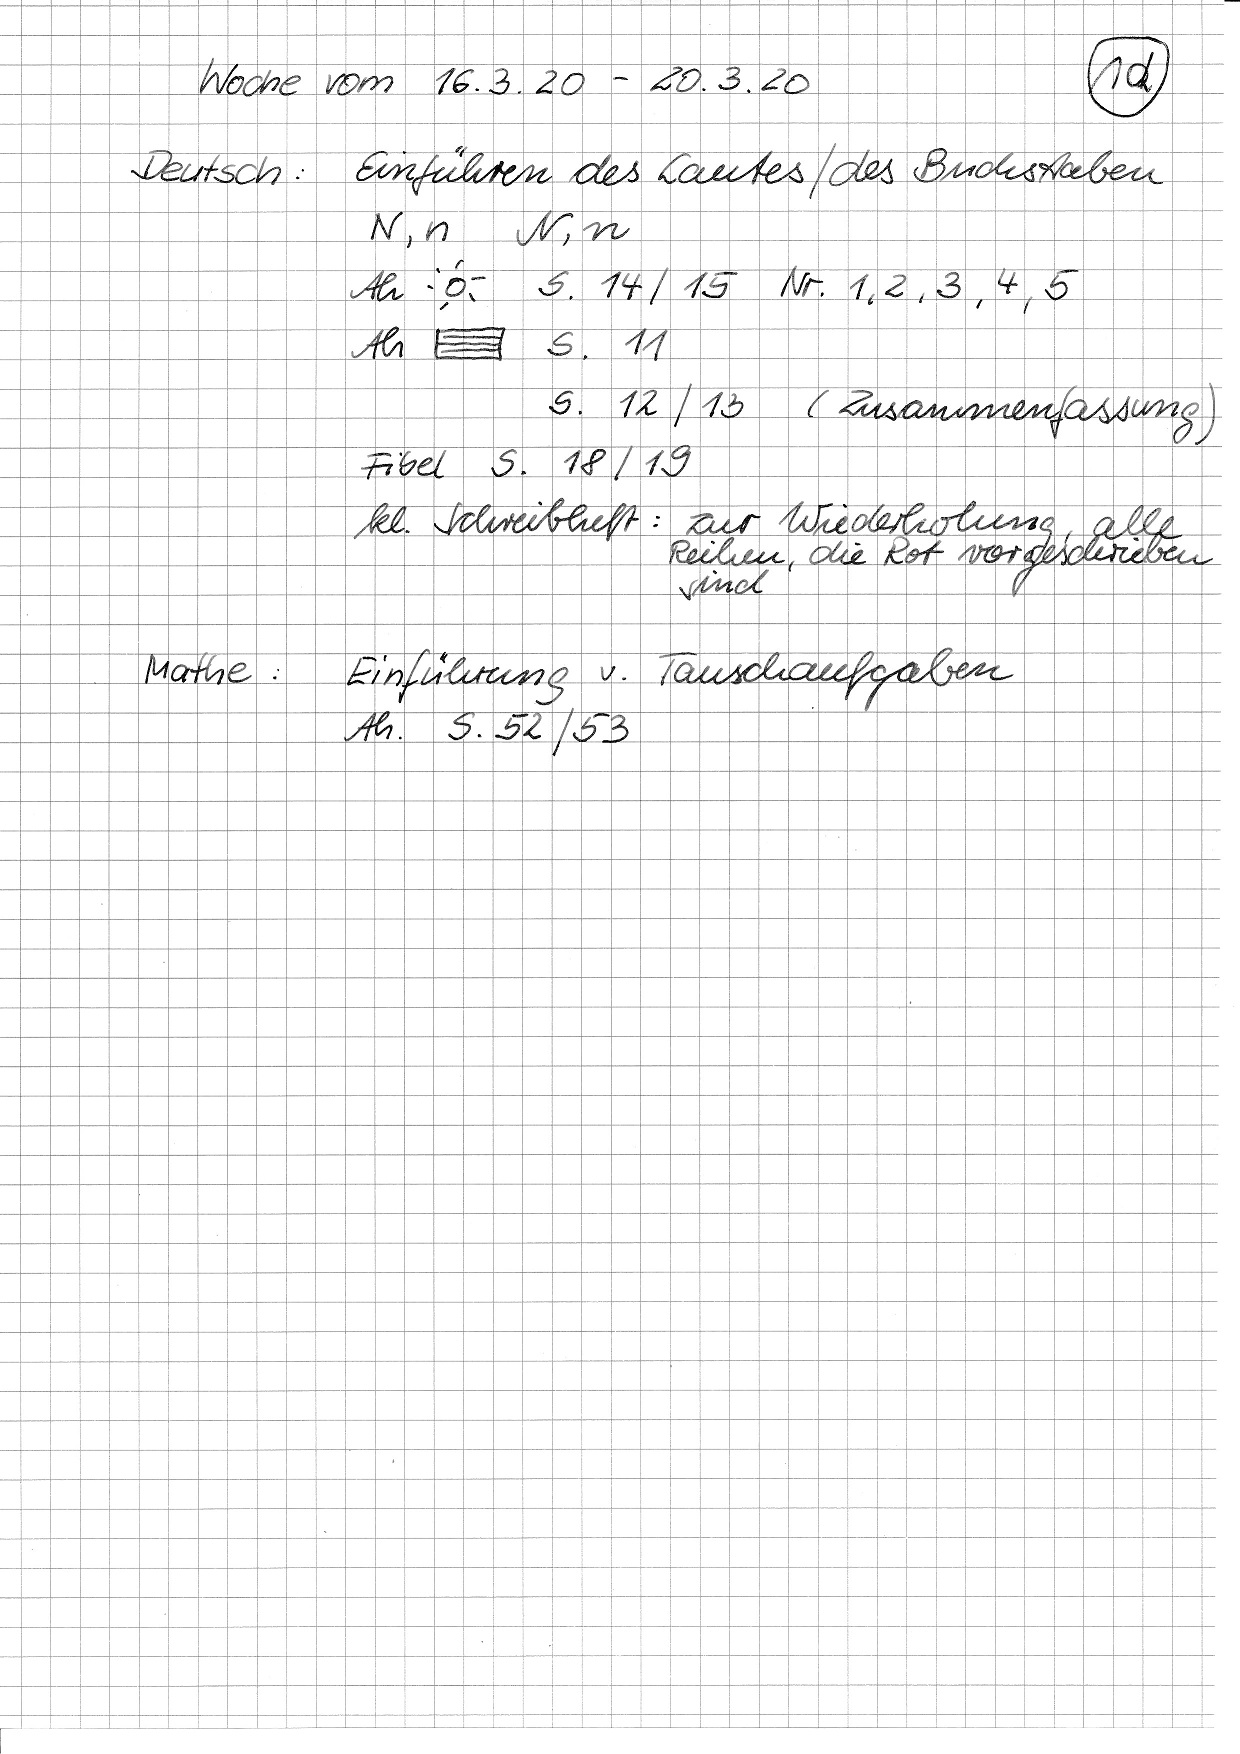 Woche vom 16.3.20 - 20.3.20
1d
Deutsch: Einführen des Lautes/des Buchstaben
N, n N, n
Ah S. 14/15 Nr. 1, 2, 3, 4, 5
Ah S. 11
S. 12/13 (Zusammenfassung)
Fibel S. 18/19
kl. Schreibheft: zur Wiederholung, alle
Reihen, die Rot vorgeschrieben
sind
Mathe: Einführung v. Tauschaufgaben
Ah. S. 52/53